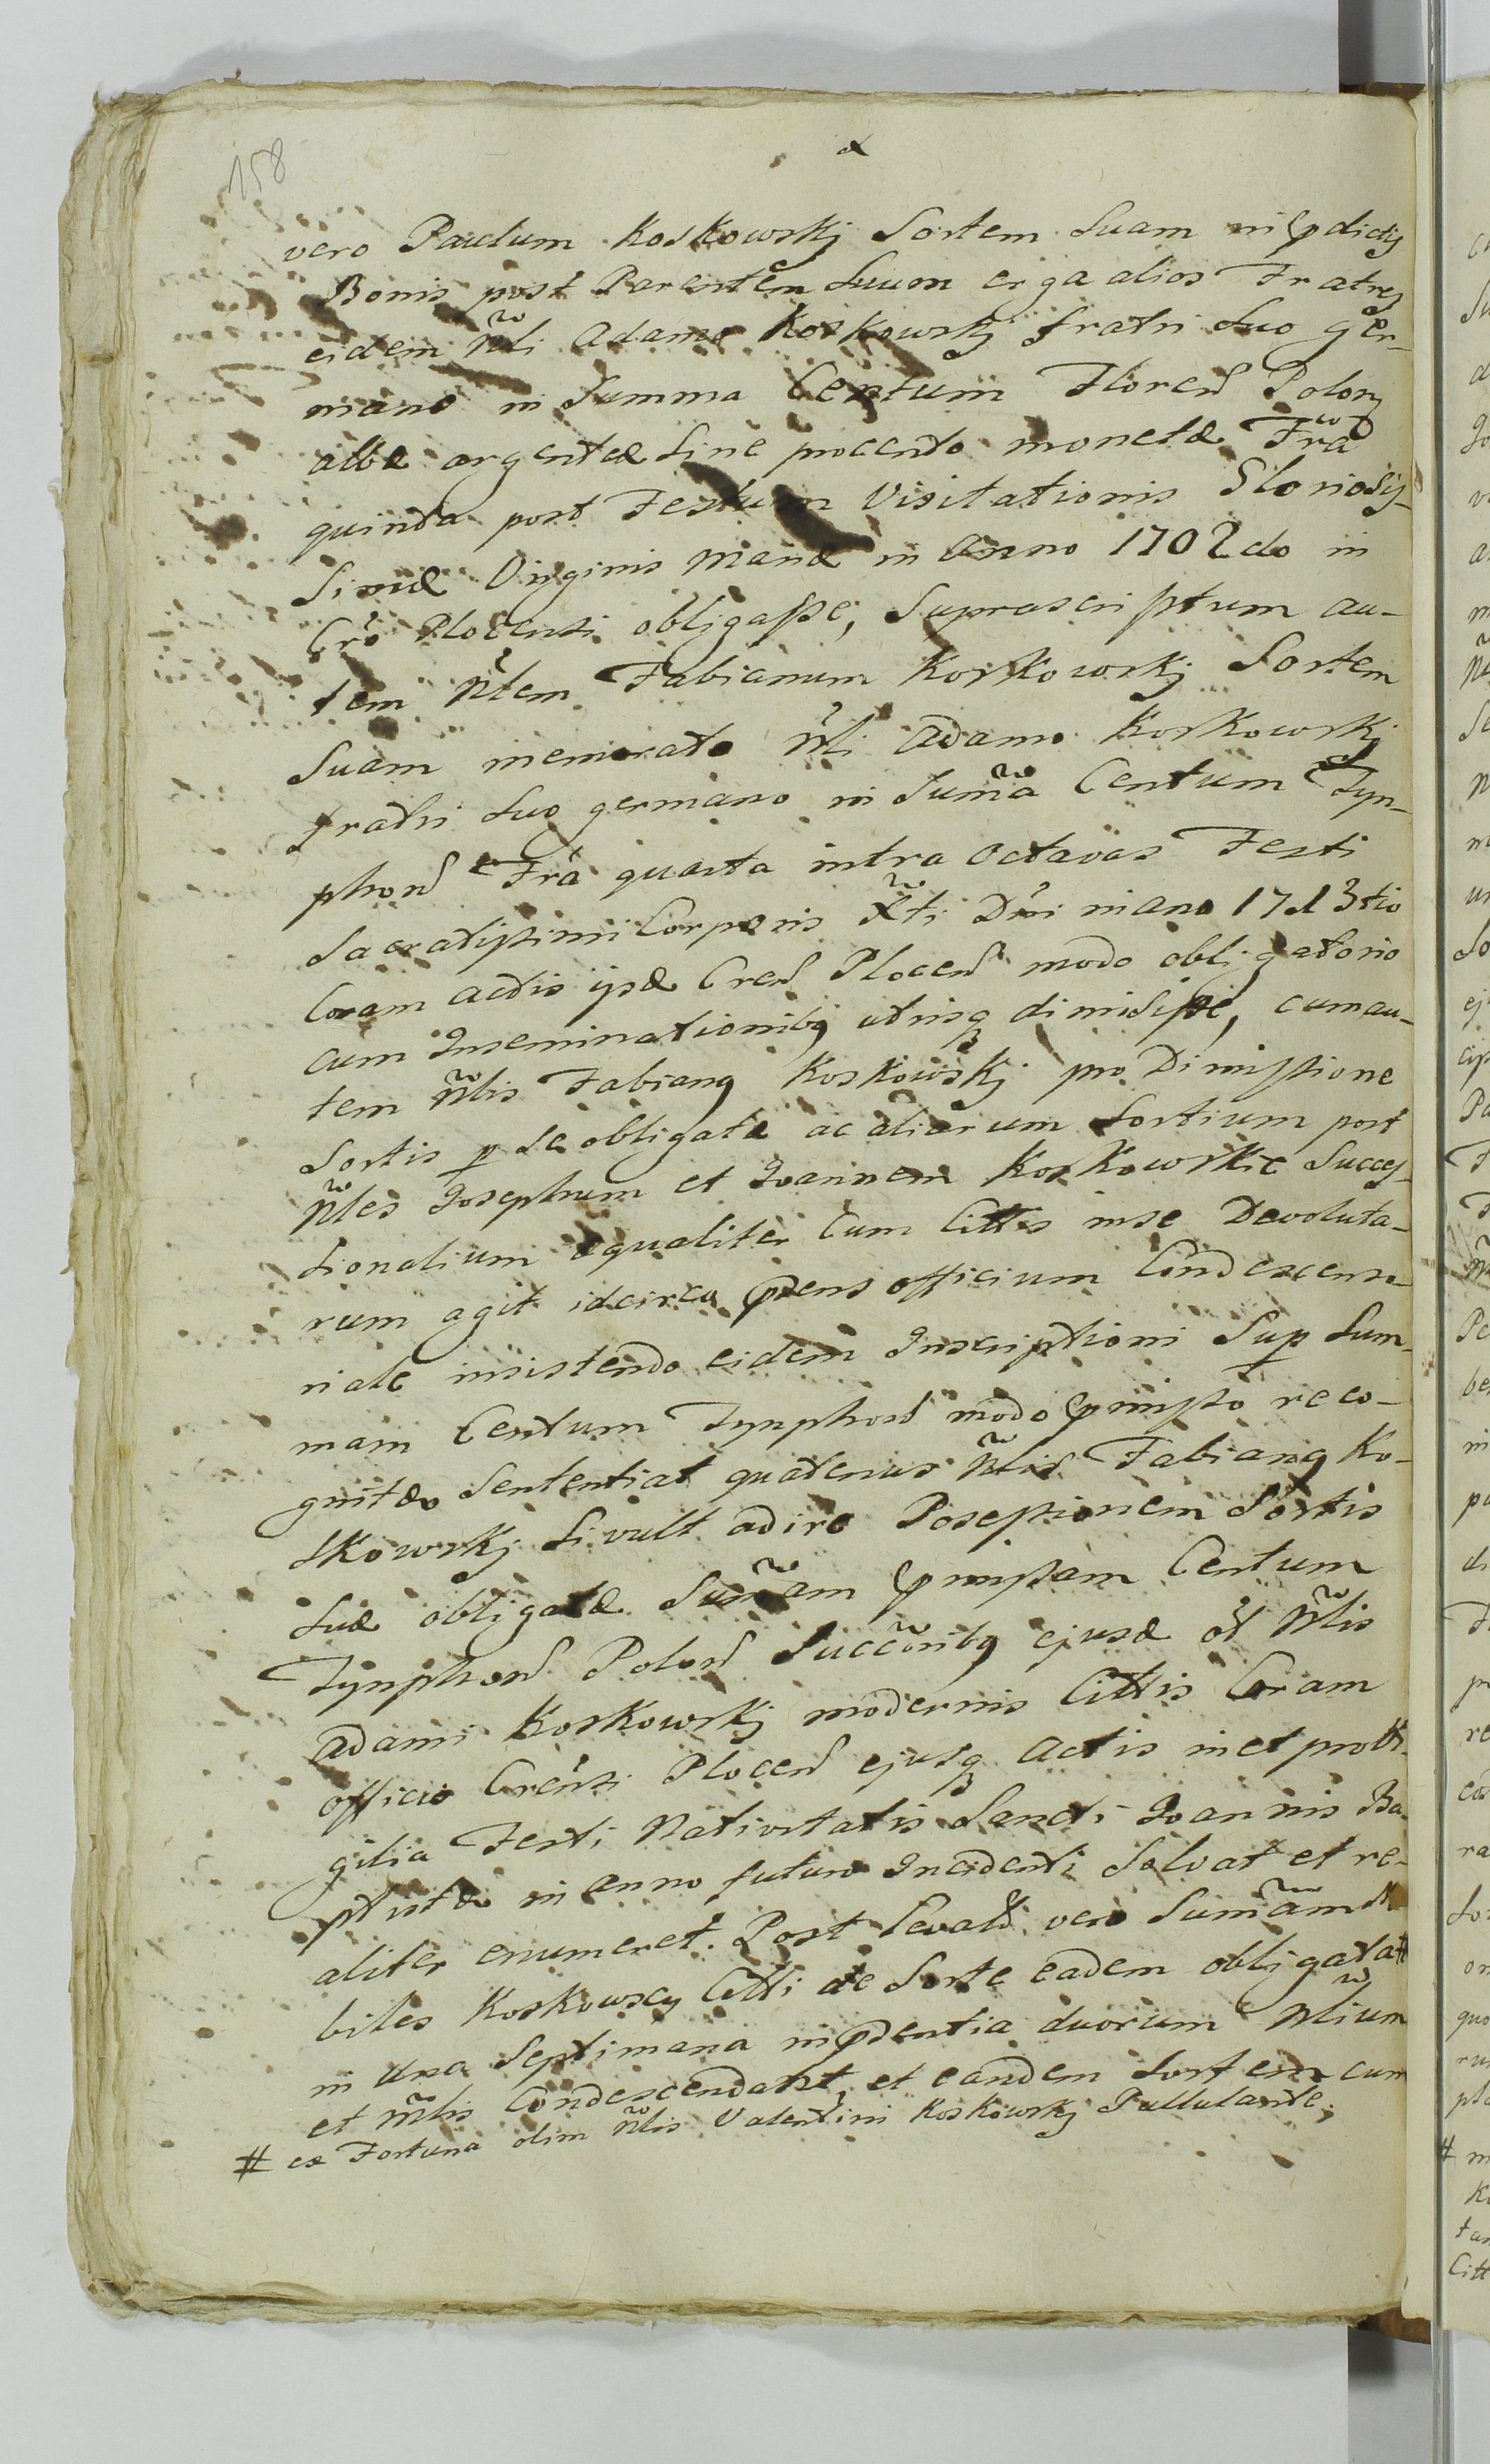 158
vero Paulum Koskowskj Sortem Suam in pdictis
Bonis post Parentem Suum erga alios Fratres
eidem Nli Adamo Koskowskj fratri Suo ger-
mano in Summa Centum Floren Polon
albæ argenteæ Sine procento monetæ Fra
quinta post Festum Visitationis Gloriosis-
Simæ Virginis Mariæ in Anno 1702do in
Cro Plocensi obligasse, Suprascriptum au-
tem Nlem Fabianum Koskowskj Sortem
Suam memorato Nli Adamo Koskowskj
fratri Suo germano in Suma Centum Tyn-
phon Fra quarta intra Octavas Festi
Sacratissimi Corporis Xti Dni in ano 1713tio
Coram actis ipsæ Cren Plocen modo obligatorio
cum Inseminationibq utrisq dimisisse, cum au-
tem Nlis Fabianq Koskowskj pro Dimissione
Sortis p se obligatæ ac aliarum Sortium post
Nles Josephum et Joannem Koskowskie Succes-
sionalium æqualiter Cum Cittis in se Devoluta-
rum agit idcirco pdens officium Condescenso-
riale insistendo eidem Inscriptioni Sup Sum-
mam Centum Tynphon modo pmisso reco-
gnitæ Sententiat quatenus Nlis Fabianq Ko-
skowskj Si vult adire Possessionem Sortis
Suæ obligatæ Sumam pmissam Centum
Tynphon Polon Succoribq ejusd ol Nlis
Adami Koskowskj modernis Cittis Coram
officio Crensi Plocen ejusq Actis in et pro Vi-
gilia Festi Nativitatis Sancti Joannis Ba-
ptistæ in anno futuro Incidenti Solvat et re-
aliter enumeret. Post Levat vero Sumam No
biles Koskowscy Citti de Sorte eadem obligata #
in Una Septimana in pdentia duorum Nlium
et Mlis Condescendant et eandem Sortem cum
# ex Fortuna olim Nlis Valentini Koskowskj Pullulante.